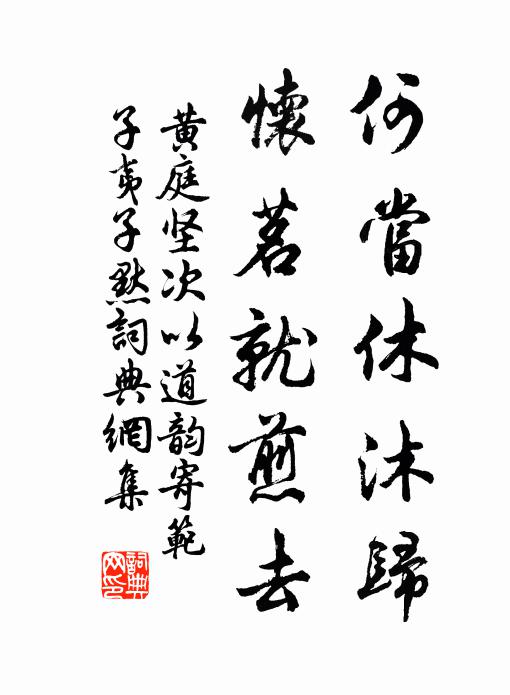 何當休沐歸
懷茗就煎去
黃庭坚次以道韵寄範
子夷子默詞典網集
詞典網印